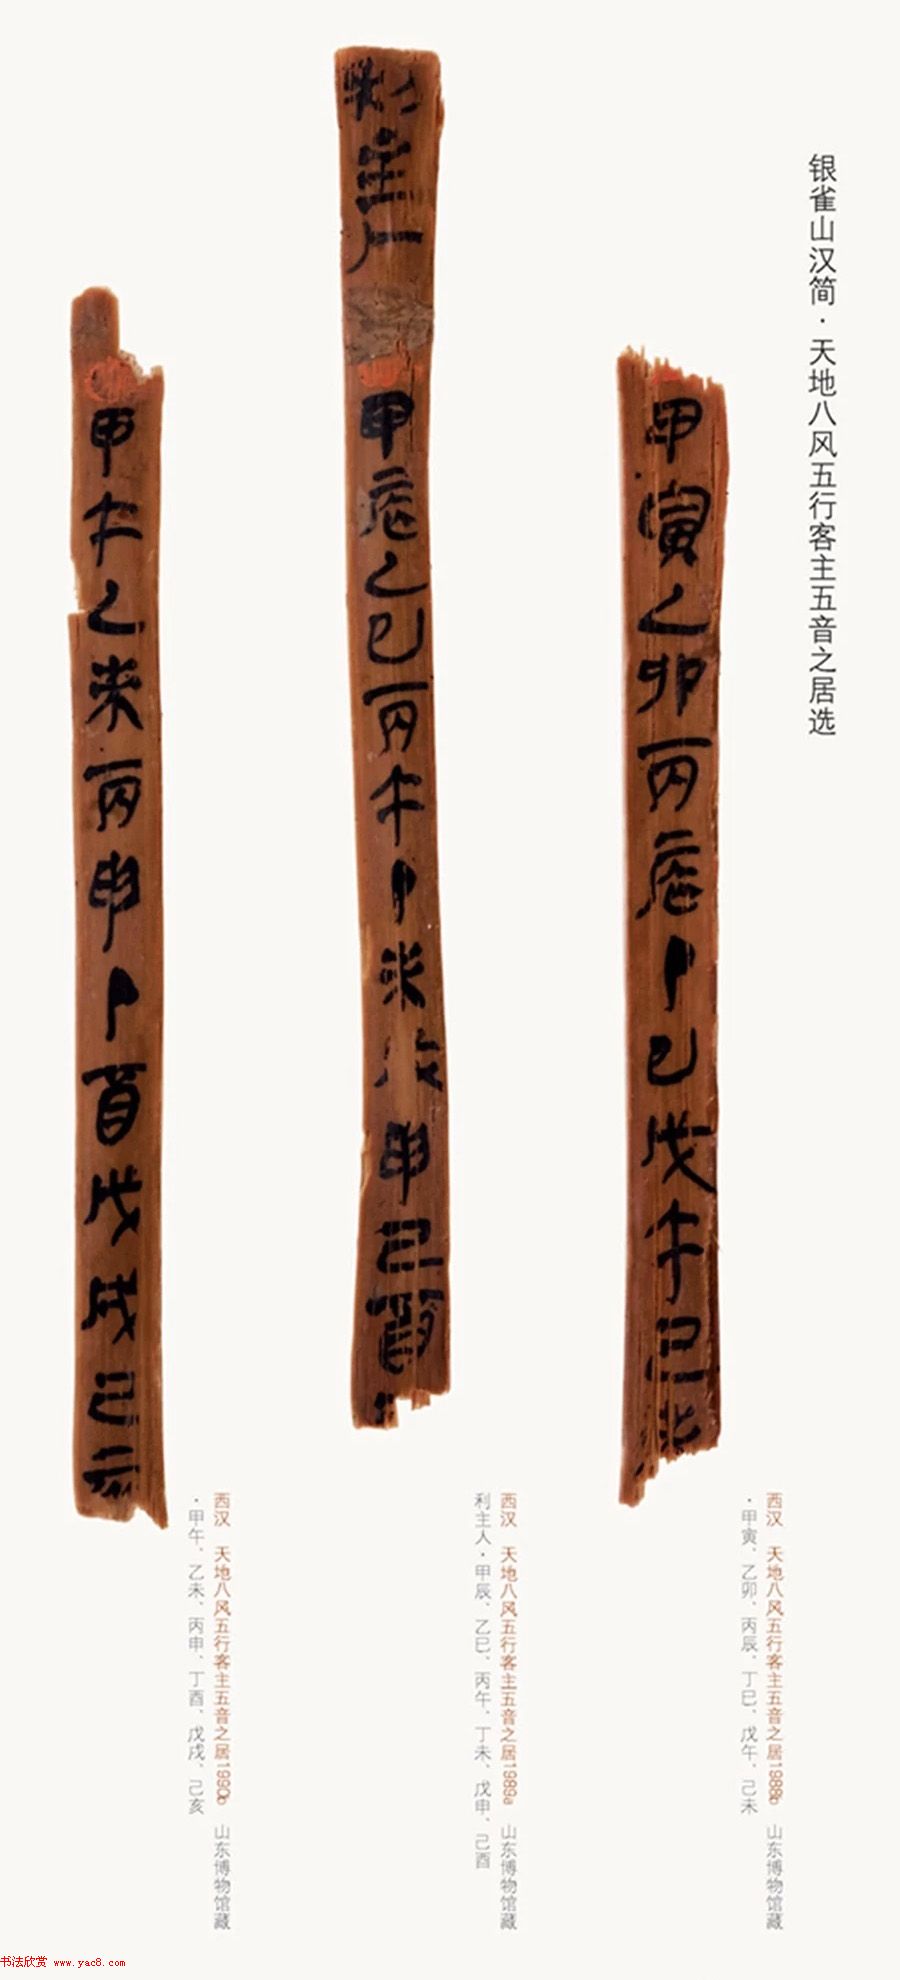 银雀山汉简·天地八风五行客主五音之居选
甲寅乙卯丙辰丁巳戊午己未
利主人
甲辰乙巳丙午丁未戊申己酉
甲午乙未丙申丁酉戊戌己亥
西汉 天地八风五行客主五音之居1988b 山东博物馆藏
·甲寅、乙卯、丙辰、丁巳、戊午、己未
西汉 天地八风五行客主五音之居1989a 山东博物馆藏
利主人·甲辰、乙巳、丙午、丁未、戊申、己酉
西汉 天地八风五行客主五音之居1990b 山东博物馆藏
·甲午、乙未、丙申、丁酉、戊戌、己亥
书法欣赏 www.yac8.com